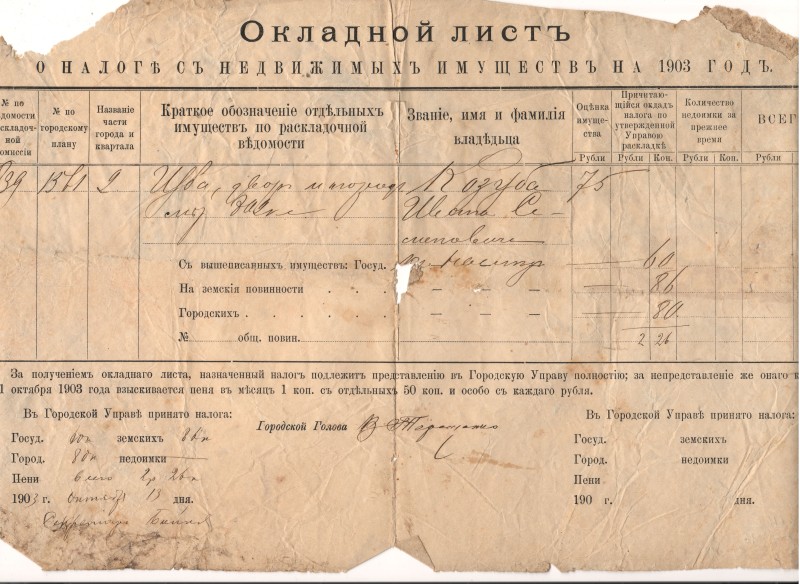 Окладной листъ
О НАЛОГѢ СЪ НЕДВИЖИМЫХЪ ИМУЩЕСТВЪ НА 1903 ГОДЪ.
№ по
домости
складоч-
ной
омиссіи
№ по
городскому
плану
Названіе
части
города и
квартала
Краткое обозначеніе отдѣльныхъ
имуществъ по раскладочной
вѣдомости
Званіе, имя и фамилія
владѣдьца
Оцѣнка
имуще-
ства
Причитаю-
щійся окладъ
налога по
утвержденной
Управою
раскладкѣ
Количество
недоимки за
прежнее
время
ВСЕГ
Рубли Рубли Коп. Рубли Коп. Рубли
39 1561 2 Козуба 75
Ивана Се-
меновича
Съ вышеписанныхъ имуществъ: Госуд. 60
На земскія повинности . . . — — — 86
Городскихъ . . . . . . — — — 80
№ общ. повин. . . . — — — 2 26
За полученіемъ окладнаго листа, назначенный налогъ подлежитъ представленію въ Городскую Управу полностію; за непредставленіе же онаго к
1 октября 1903 года взыскивается пеня въ мѣсяцъ 1 коп. съ отдѣльныхъ 50 коп. и особо съ каждаго рубля.
Въ Городской Управѣ принято налога:
Госуд. 60к земскихъ 86к
Город. 80к недоимки —
Пени всего 2р 26к
1903 г. октября 15 дня.
Секретарь
Городской Голова
Въ Городской Управѣ принято налога:
Госуд. земскихъ
Город. недоимки
Пени
190 г. дня.